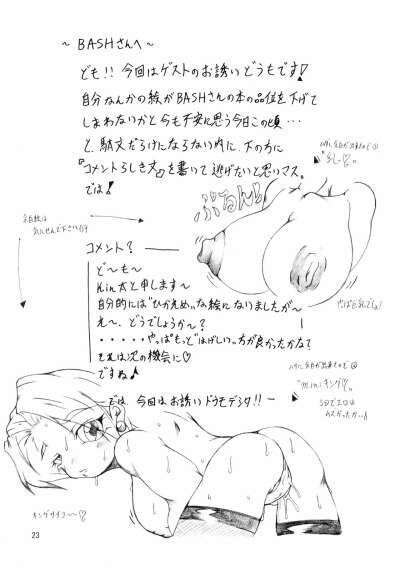 ～BASHさんへ～
ども!! 今回はゲストのお誘いどうもです♪
自分なんかの絵がBASHさんの本の品位を下げて
しまわないかと今も不安に思う今日この頃…
と、駄文だらけにならない内に、下の方に
『コメントらしき文』を書いて逃げたいと思いマス。
では♪
ぶるんっ
コメント?
ど～も～
と申します～
自分的には"ひかえめ"な絵になりましたが～
え～、どうでしょうか～?
・・・・・やっぱもっと"はげしい"方が良かったかなて
それは次の機会に♡
ですね♪
～では、今回はお誘いドウモデシタ!!～
"miniキング♡"
SDでエロは
キングサイコー～♡
23